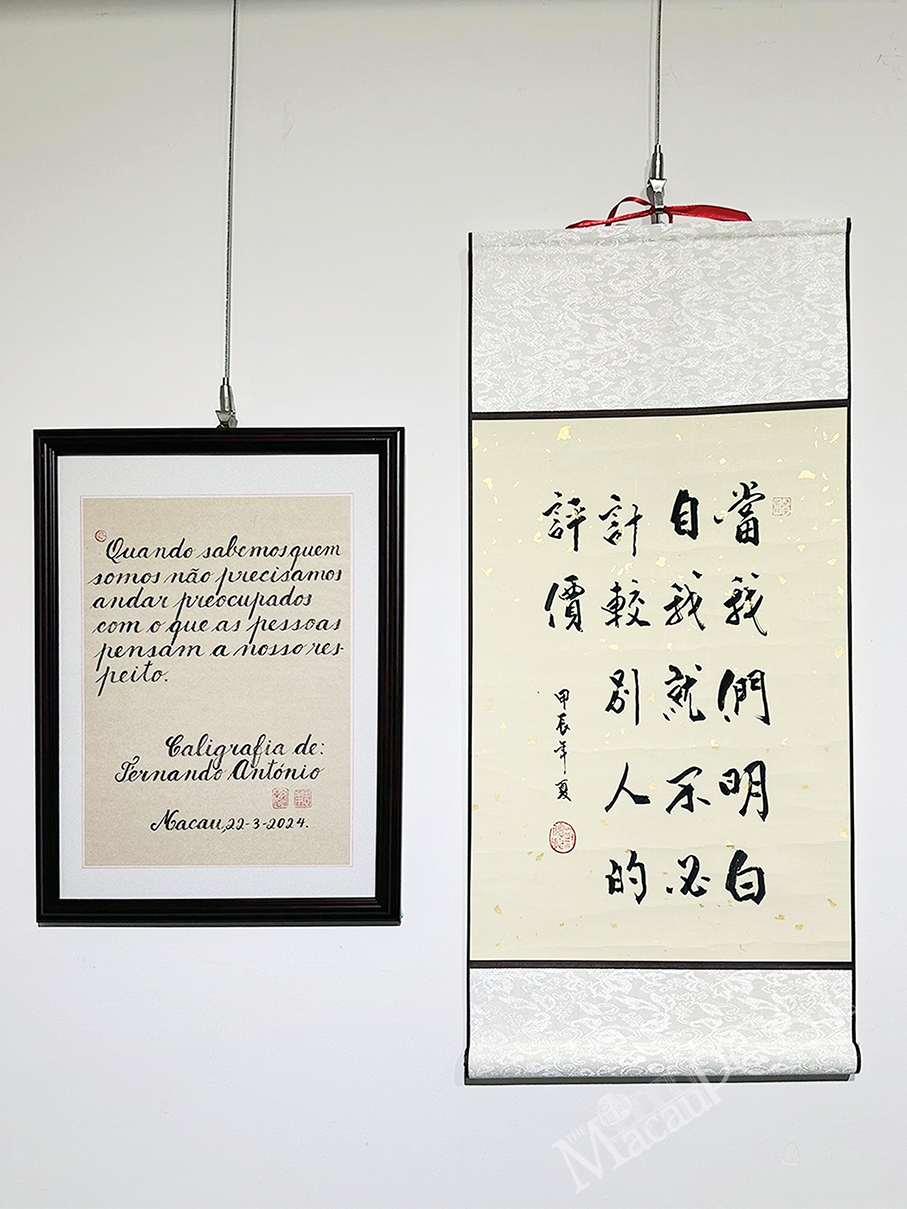 Quando sabemos quem
somos não precisamos
andar preocupados
com o que as pessoas
pensam a nosso res-
peito.
Caligrafia de:
Fernando António
Macau, 22-3-2024.
當我們明白
自我就不必
計較別人的
評價
甲辰年夏
THE
Macau